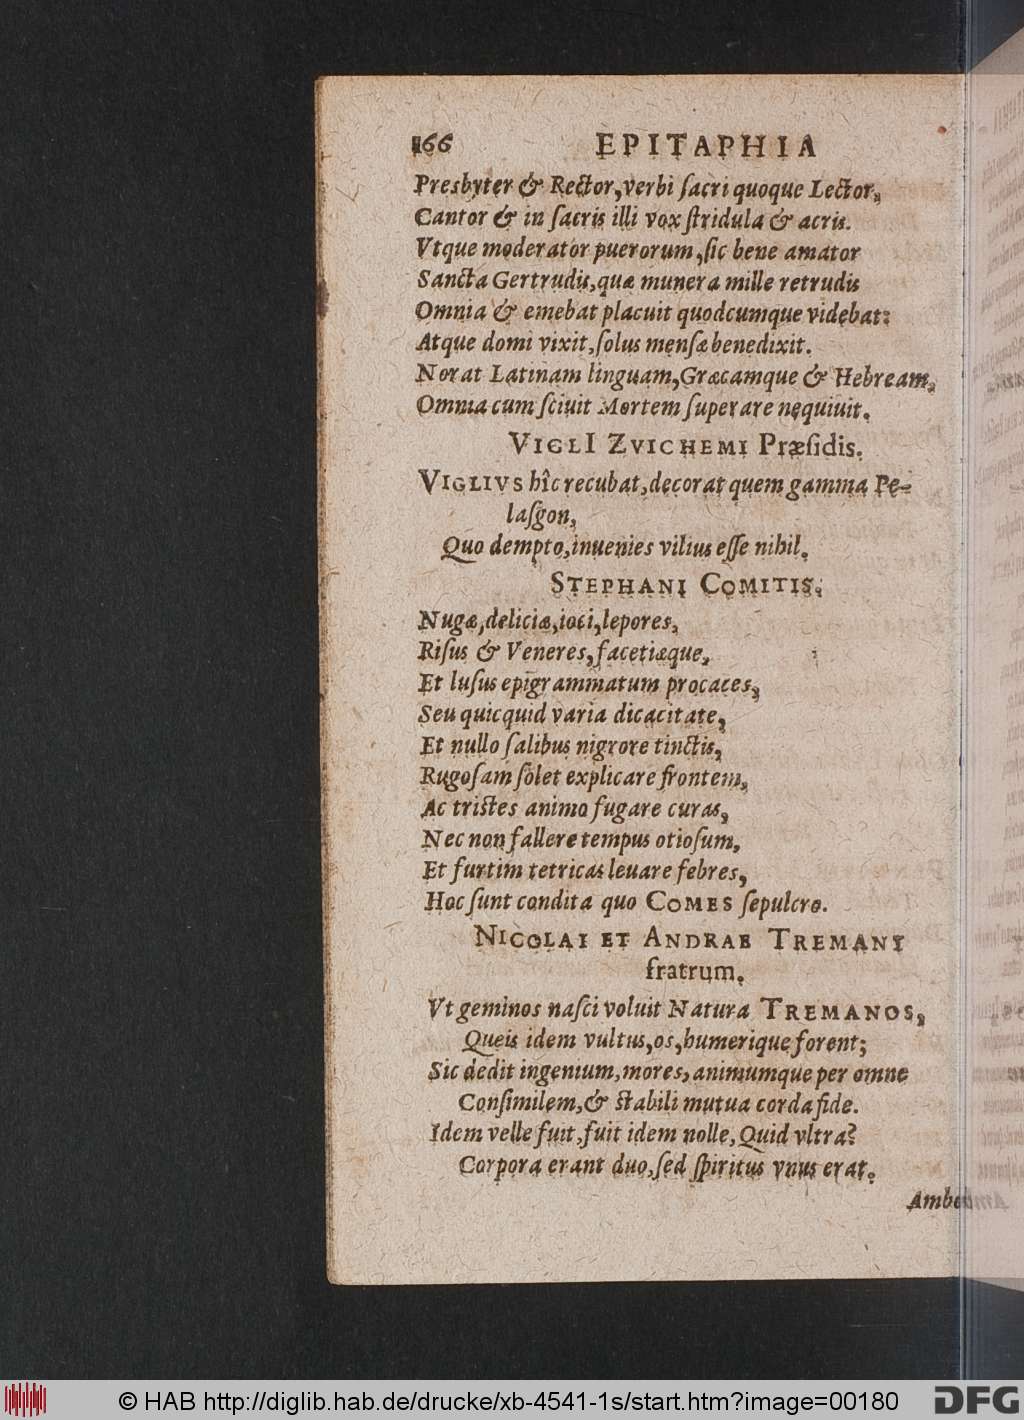 166 EPITAPHIA
Presbyter & Rector, verbi ſacri quoque Lector,
Cantor & in ſacris illi vox ſtridula & acris.
Vtque moderator puerorum, ſic bene amator
Sancta Gertrudis, quæ munera mille retrudis
Omnia & emebat placuit quodcumque videbat:
Atque domi vixit, ſolus menſæ benedixit.
Norat Latinam linguam, Græcamque & Hebream,
Omnia cum ſciuit Mortem ſuperare nequiuit.
VIGLI ZVICHEMI Præſidis.
VIGLIVS hîc recubat, decorat quem gamma Pe-
laſgon,
Quo dempto, inuenies vilius eſſe nihil.
STEPHANI COMITIS.
Nugæ, deliciæ, ioci, lepores,
Riſus & Veneres, facetiæque,
Et luſus epigrammatum procaces,
Seu quicquid varia dicacitate,
Et nullo ſalibus nigrore tinctis,
Rugoſam ſolet explicare frontem,
Ac triſtes animo fugare curas,
Nec non fallere tempus otioſum,
Et furtim tetricas leuare febres,
Hoc ſunt condita quo COMES ſepulcro.
NICOLAI ET ANDRAE TREMANI
fratrum.
Vt geminos naſci voluit Natura TREMANOS,
Queis idem vultus, os, humerique forent;
Sic dedit ingenium, mores, animumque per omne
Conſimilem, & ſtabili mutua corda fide.
Idem velle fuit, fuit idem nolle, Quid vltra?
Corpora erant duo, ſed ſpiritus vnus erat.
© HAB http://diglib.hab.de/drucke/xb-4541-1s/start.htm?image=00180
DFG